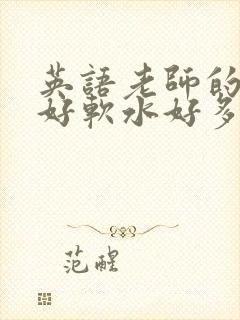 英語老師的
好軟水好多
范醒